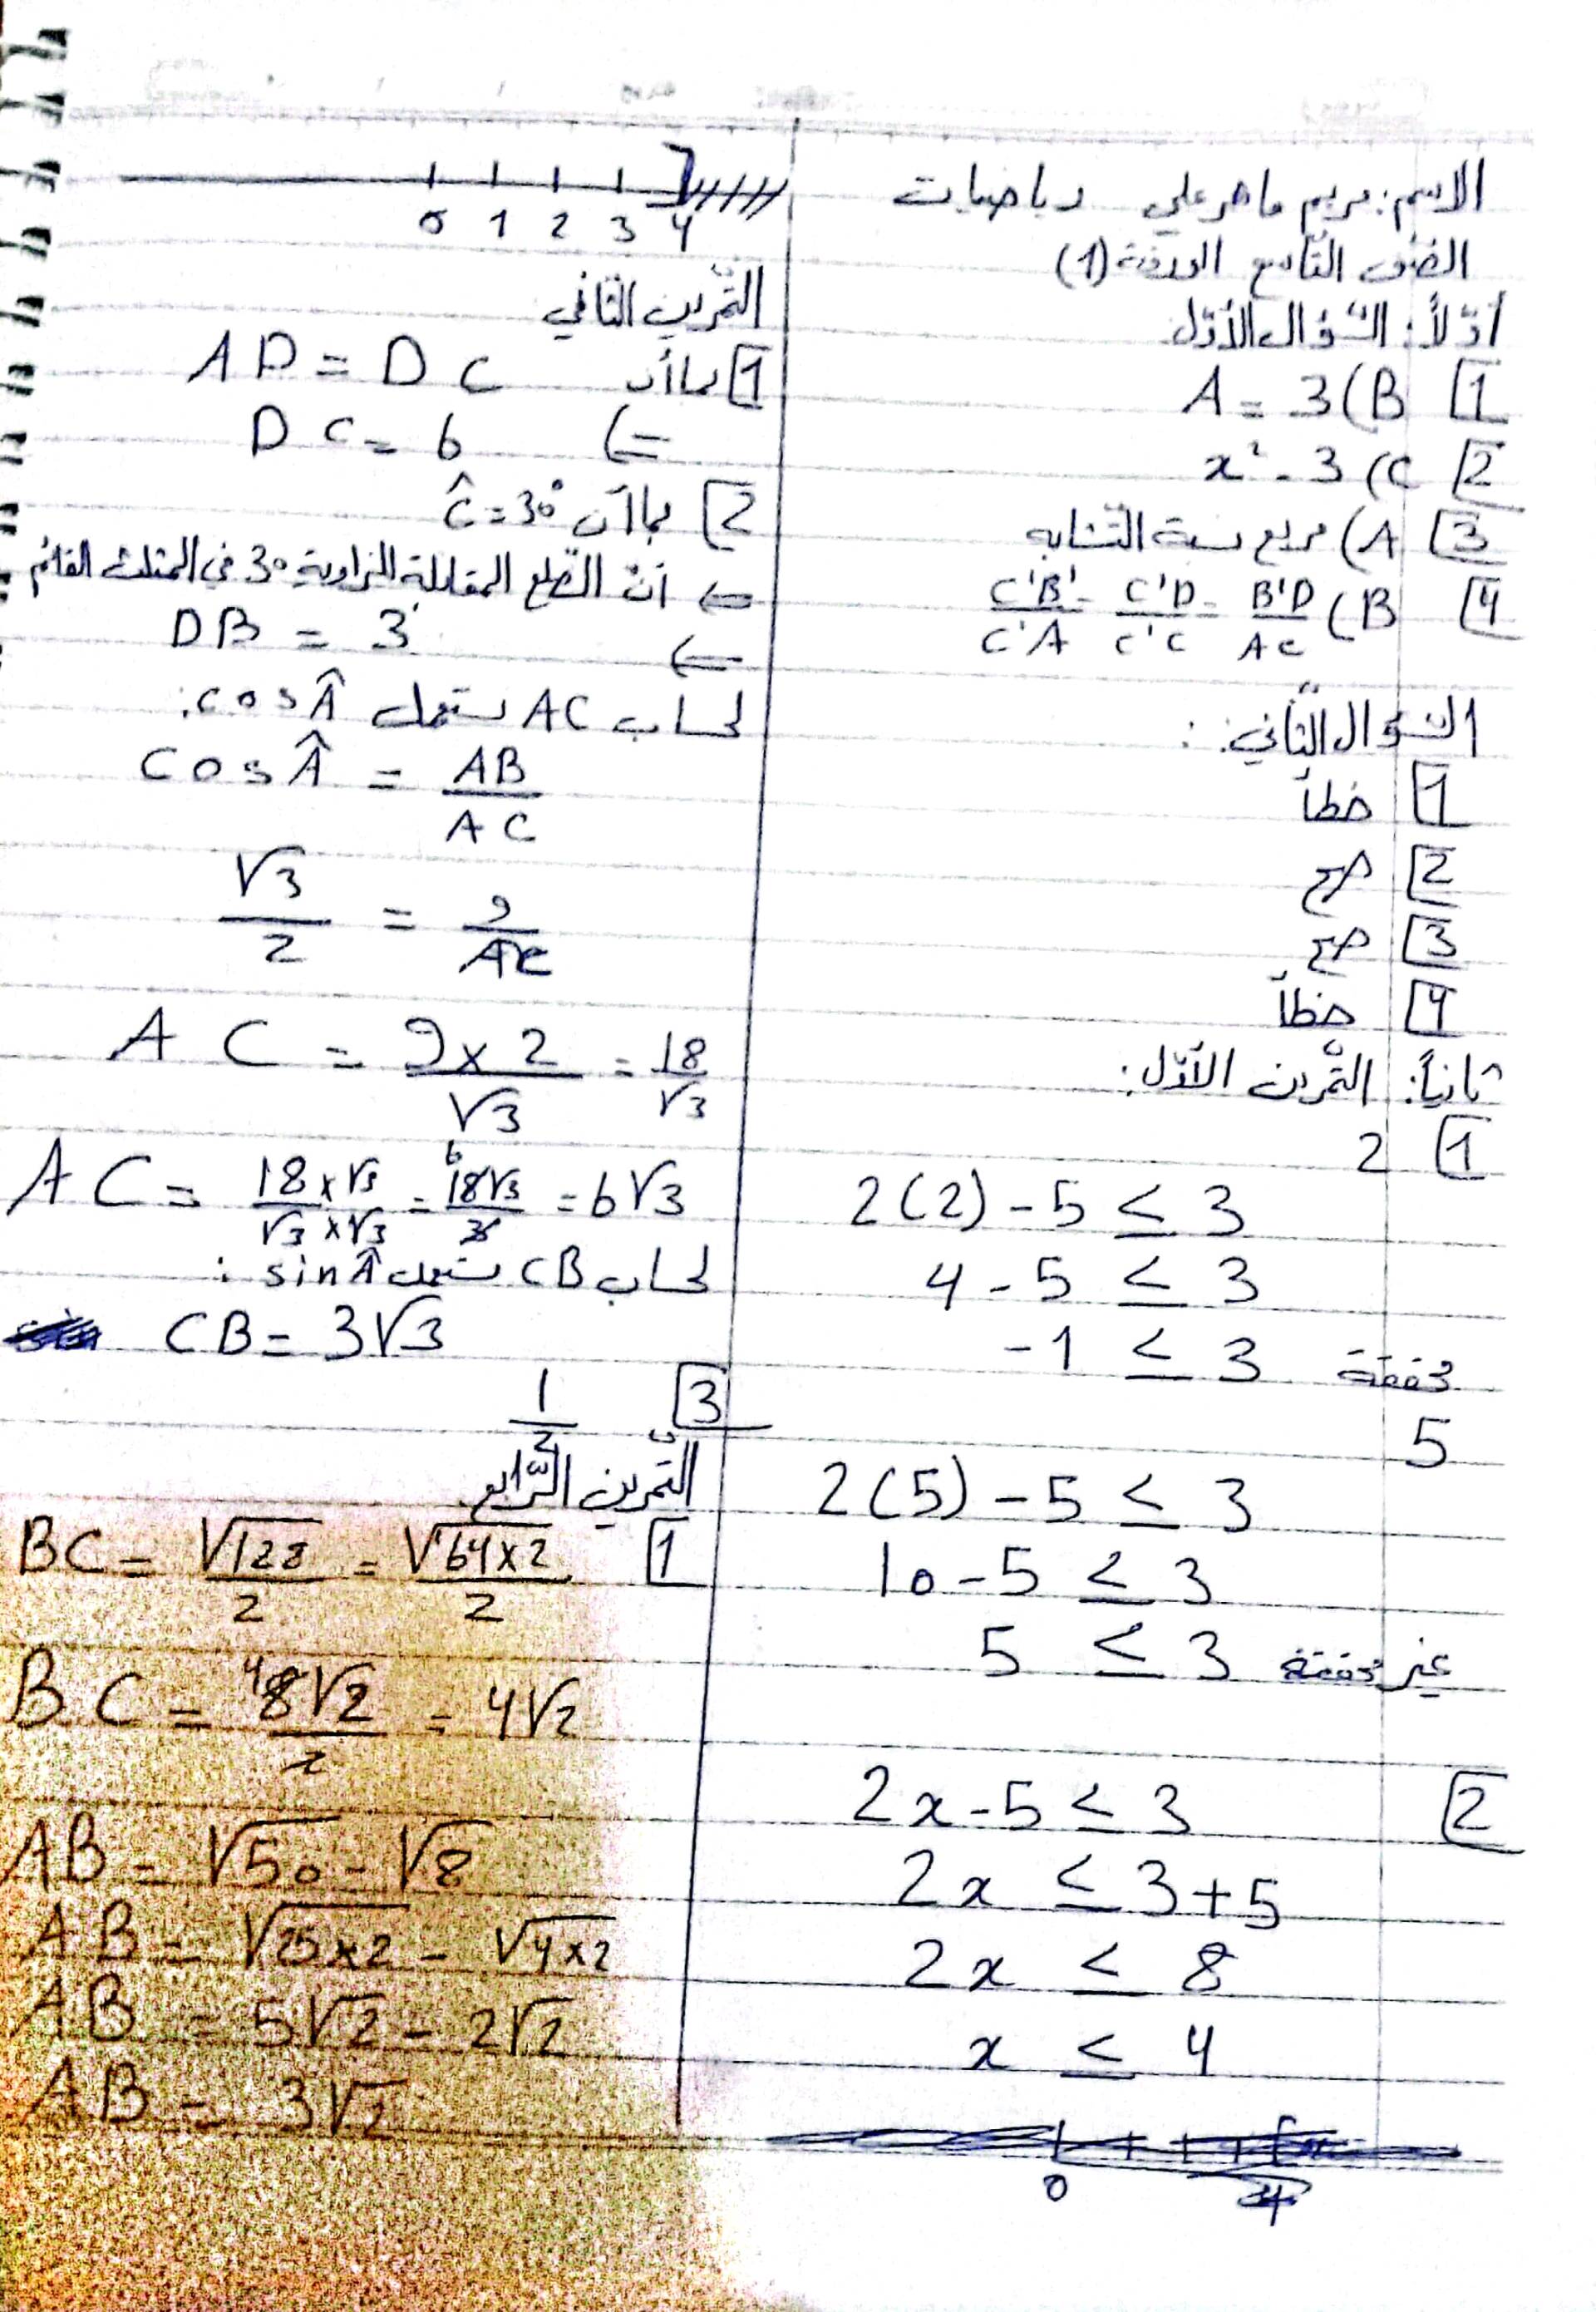 الاسم: مريم ماهر علي رياضيات
الصّف التّاسع الورقة (1)
أوّلاً: السّؤال الأوّل
1 B) A = 3
2 C) x² - 3
3 A) مربع نسبة التّشابه
4 B) B'D/AC = C'D/C'C = C'B'/C'A
السّؤال الثّاني:
1 خطأ
2 صح
3 صح
4 خطأ
ثانياً: التّمرين الأوّل:
1 2
2(2) - 5 ≤ 3
4 - 5 ≤ 3
-1 ≤ 3 محققة
5
2(5) - 5 ≤ 3
10 - 5 ≤ 3
5 ≤ 3 غير محققة
2 2x - 5 ≤ 3
2x ≤ 3 + 5
2x ≤ 8
x ≤ 4
0 4
0 1 2 3 4
التّمرين الثّاني
1 بما أن AD = DC
⇐ DC = 6
2 بما أن Ĉ = 30°
⇐ أنّ الضلع المقابلة للزاوية 30 في المثلث القائم
⇐ DB = 3
لحساب AC نستعمل cos Â:
cos Â = AB/AC
√3/2 = 9/AC
AC = 9×2/√3 = 18/√3
AC = 18×√3/√3×√3 = 18√3/3 = 6√3
لحساب CB نستعمل sin Â:
CB = 3√3
3 1/2
التّمرين الرّابع
1 BC = √128/2 = √64×2/2
BC = 8√2/2 = 4√2
AB = √50 - √8
AB = √25×2 - √4×2
AB = 5√2 - 2√2
AB = 3√2